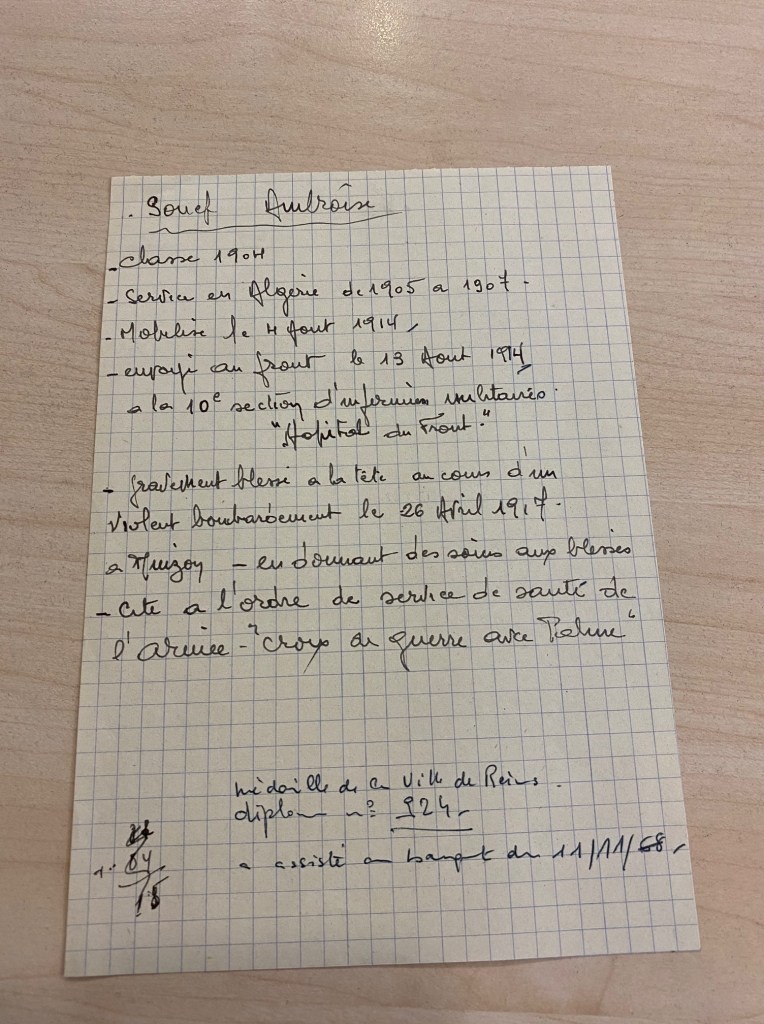 . Souef Ambroîse
- classe 1904
- Service en Algérie de 1905 a 1907.
- Mobilise le 4 Aout 1914,
- envoyé au front le 13 Aout 1914
a la 10e section d'infirmiers militaires.
"Hopital du Front."
- gravement blessé a la tête au cours d'un
violent bombardement le 26 Avril 1917.
a Muizon - en donnant des soins aux blessés
- Cité a l'ordre de service de santé de
l'armée - "croix de guerre avec Palme"
médaille de la Ville de Reims.
diplome n° 924
a assisté au banquet du 11/11/68,
64
18